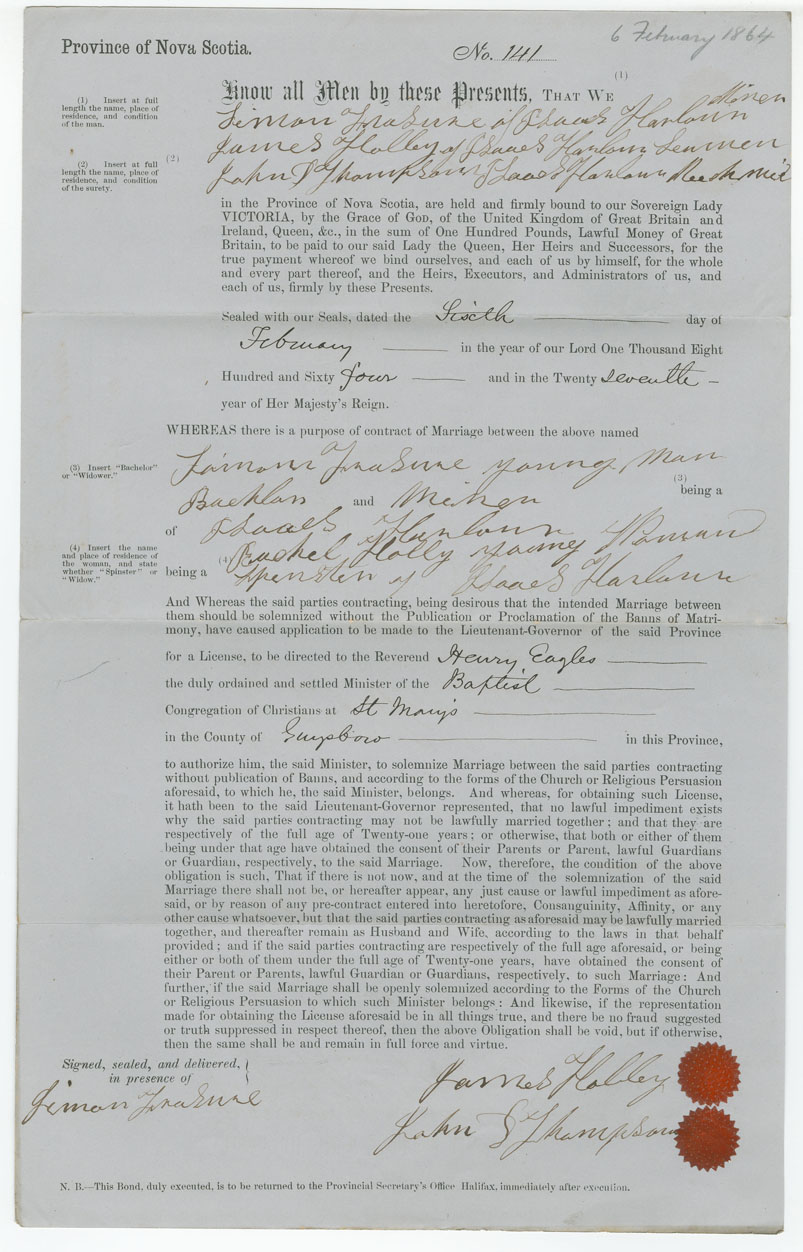 6 February 1864
Province of Nova Scotia.
No. 141
(1)
Know all Men by these Presents, THAT WE
(1) Insert at full
length the name, place of
residence, and condition
of the man.
Simon of Isaacs Harbour Miner
(2)
James Holley of Isaacs Harbour Seamen
(2) Insert at full
length the name, place of
residence, and condition
of the surety.
John S Thompson Isaacs Harbour
in the Province of Nova Scotia, are held and firmly bound to our Sovereign Lady
VICTORIA, by the Grace of GOD, of the United Kingdom of Great Britain and
Ireland, Queen, &c., in the sum of One Hundred Pounds, Lawful Money of Great
Britain, to be paid to our said Lady the Queen, Her Heirs and Successors, for the
true payment whereof we bind ourselves, and each of us by himself, for the whole
and every part thereof, and the Heirs, Executors, and Administrators of us, and
each of us, firmly by these Presents.
Sealed with our Seals, dated the Sixth day of
February in the year of our Lord One Thousand Eight
Hundred and Sixty four and in the Twenty seventh
year of Her Majesty's Reign.
WHEREAS there is a purpose of contract of Marriage between the above named
Simon young Man
(3) Insert "Bachelor"
or "Widower."
(3)
being a
and Miner
of Isaacs Harbour
(4) Insert the name
and place of residence of
the woman, and state
whether "Spinster" or
"Widow."
(4) Rachel Holly young Woman
being a of Isaacs Harbour
And Whereas the said parties contracting, being desirous that the intended Marriage between
them should be solemnized without the Publication or Proclamation of the Banns of Matri-
mony, have caused application to be made to the Lieutenant-Governor of the said Province
for a License, to be directed to the Reverend Henry Eagles
the duly ordained and settled Minister of the Baptist
Congregation of Christians at St Marys
in the County of Guysboro in this Province,
to authorize him, the said Minister, to solemnize Marriage between the said parties contracting
without publication of Banns, and according to the forms of the Church or Religious Persuasion
aforesaid, to which he, the said Minister, belongs. And whereas, for obtaining such License,
it hath been to the said Lieutenant-Governor represented, that no lawful impediment exists
why the said parties contracting may not be lawfully married together; and that they are
respectively of the full age of Twenty-one years; or otherwise, that both or either of them
being under that age have obtained the consent of their Parents or Parent, lawful Guardians
or Guardian, respectively, to the said Marriage. Now, therefore, the condition of the above
obligation is such, That if there is not now, and at the time of the solemnization of the said
Marriage there shall not be, or hereafter appear, any just cause or lawful impediment as afore-
said, or by reason of any pre-contract entered into heretofore, Consanguinity, Affinity, or any
other cause whatsoever, but that the said parties contracting as aforesaid may be lawfully married
together, and thereafter remain as Husband and Wife, according to the laws in that behalf
provided; and if the said parties contracting are respectively of the full age aforesaid, or being
either or both of them under the full age of Twenty-one years, have obtained the consent of
their Parent or Parents, lawful Guardian or Guardians, respectively, to such Marriage: And
further, if the said Marriage shall be openly solemnized according to the Forms of the Church
or Religious Persuasion to which such Minister belongs: And likewise, if the representation
made for obtaining the License aforesaid be in all things true, and there be no fraud suggested
or truth suppressed in respect thereof, then the above Obligation shall be void, but if otherwise,
then the same shall be and remain in full force and virtue.
Signed, sealed, and delivered,
in presence of
Simon
James Holley
John S Thompson
N. B.—This Bond, duly executed, is to be returned to the Provincial Secretary's Office Halifax, immediately after execution.